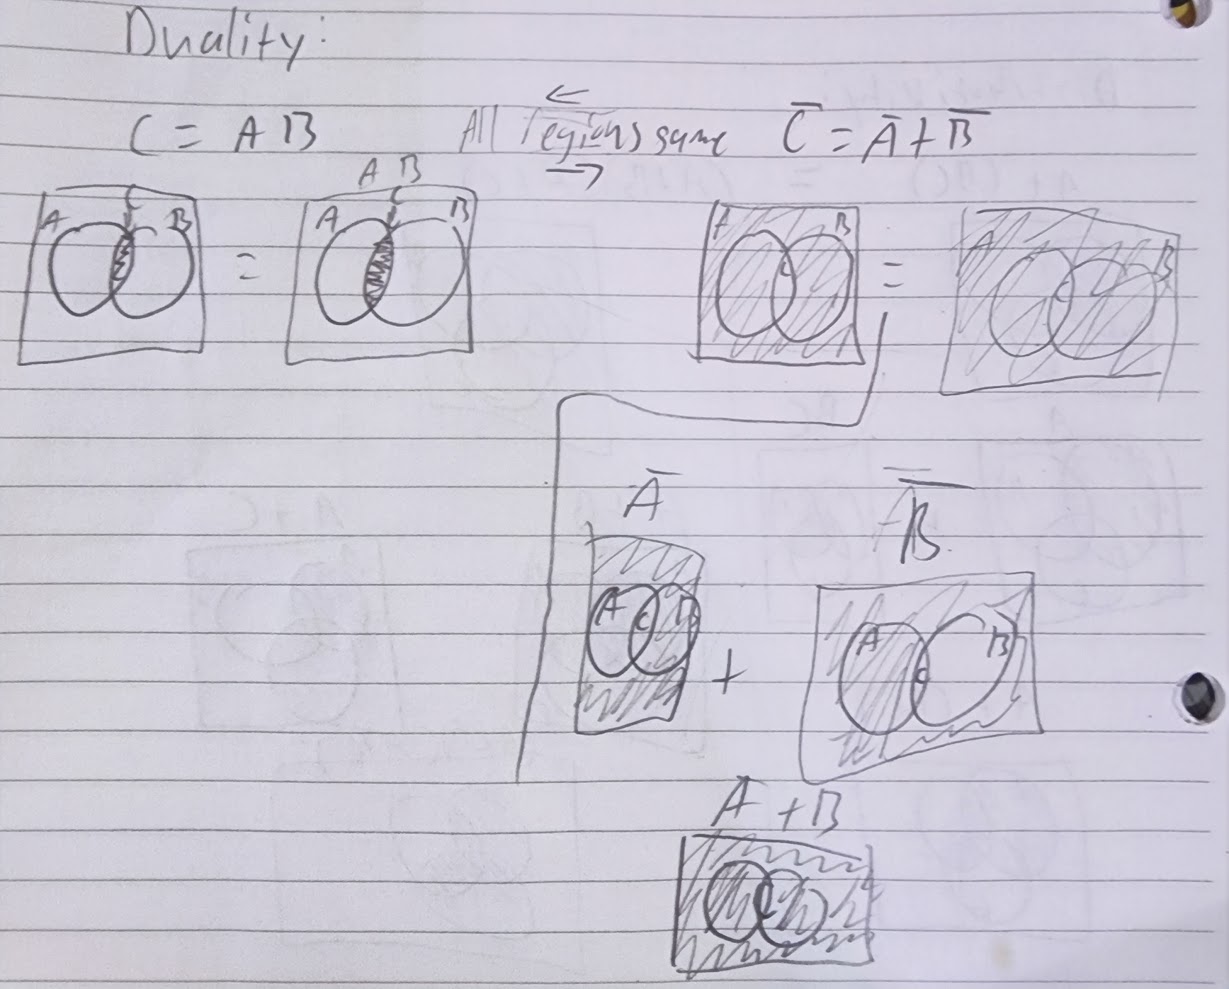 Duality:
C = AB All regions same C̄ = Ā + B̄
A B
A C B = A C B A C B = A C B
Ā B̄
A C B + A C B
A + B
C